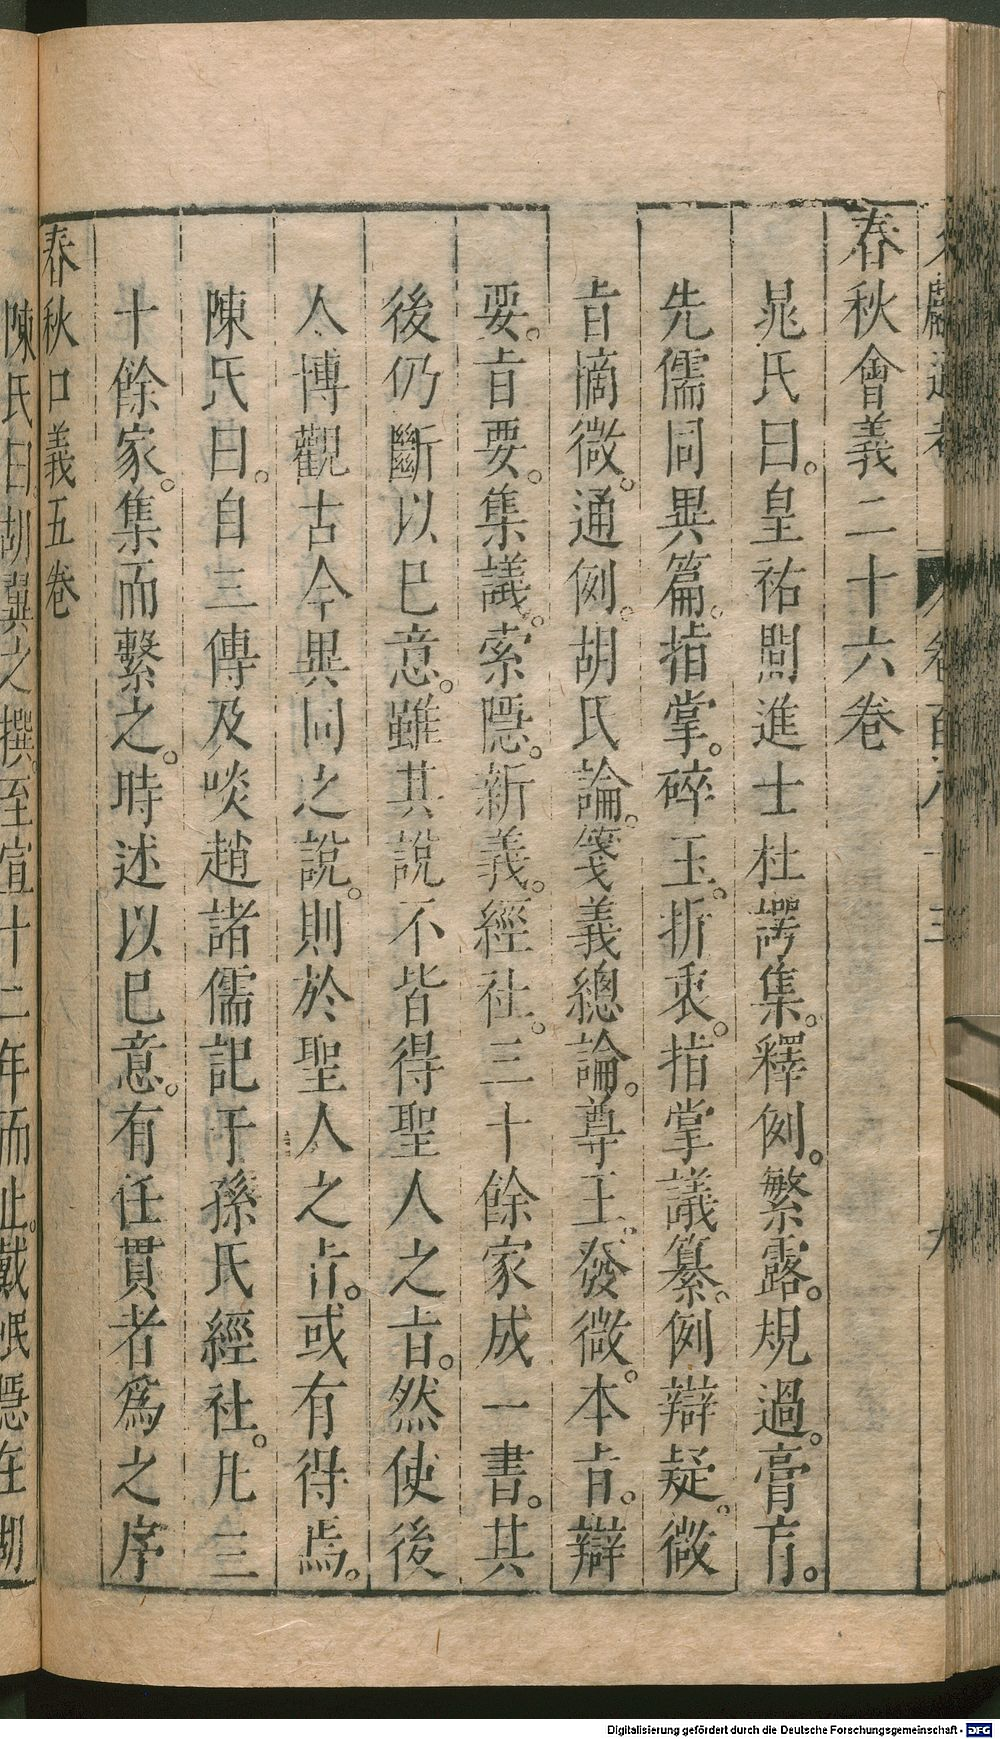 春秋會義二十六卷
晁氏曰。皇祐間進士杜諤集。釋例。繁露。規過。膏肓。
先儒同異篇。指掌。碎玉。折衷。指掌議纂。例辯疑。微
旨摘微。通例。胡氏論。箋義總論。尊王。發微。本旨。辯
要。旨要。集議。索隱。新義。經社。三十餘家成一書。其
後仍斷以巳意。雖其說不皆得聖人之旨。然使後
人博觀古今異同之說。則於聖人之旨。或有得焉。
陳氏曰。自三傳及啖趙諸儒記于孫氏經社。凡三
十餘家。集而繫之。時述以巳意。有任貫者爲之序
春秋口義五卷
陳氏曰胡翼之撰。至宣十二年而止。戴岷隱在湖
Digitalisierung gefördert durch die Deutsche Forschungsgemeinschaft - DFG